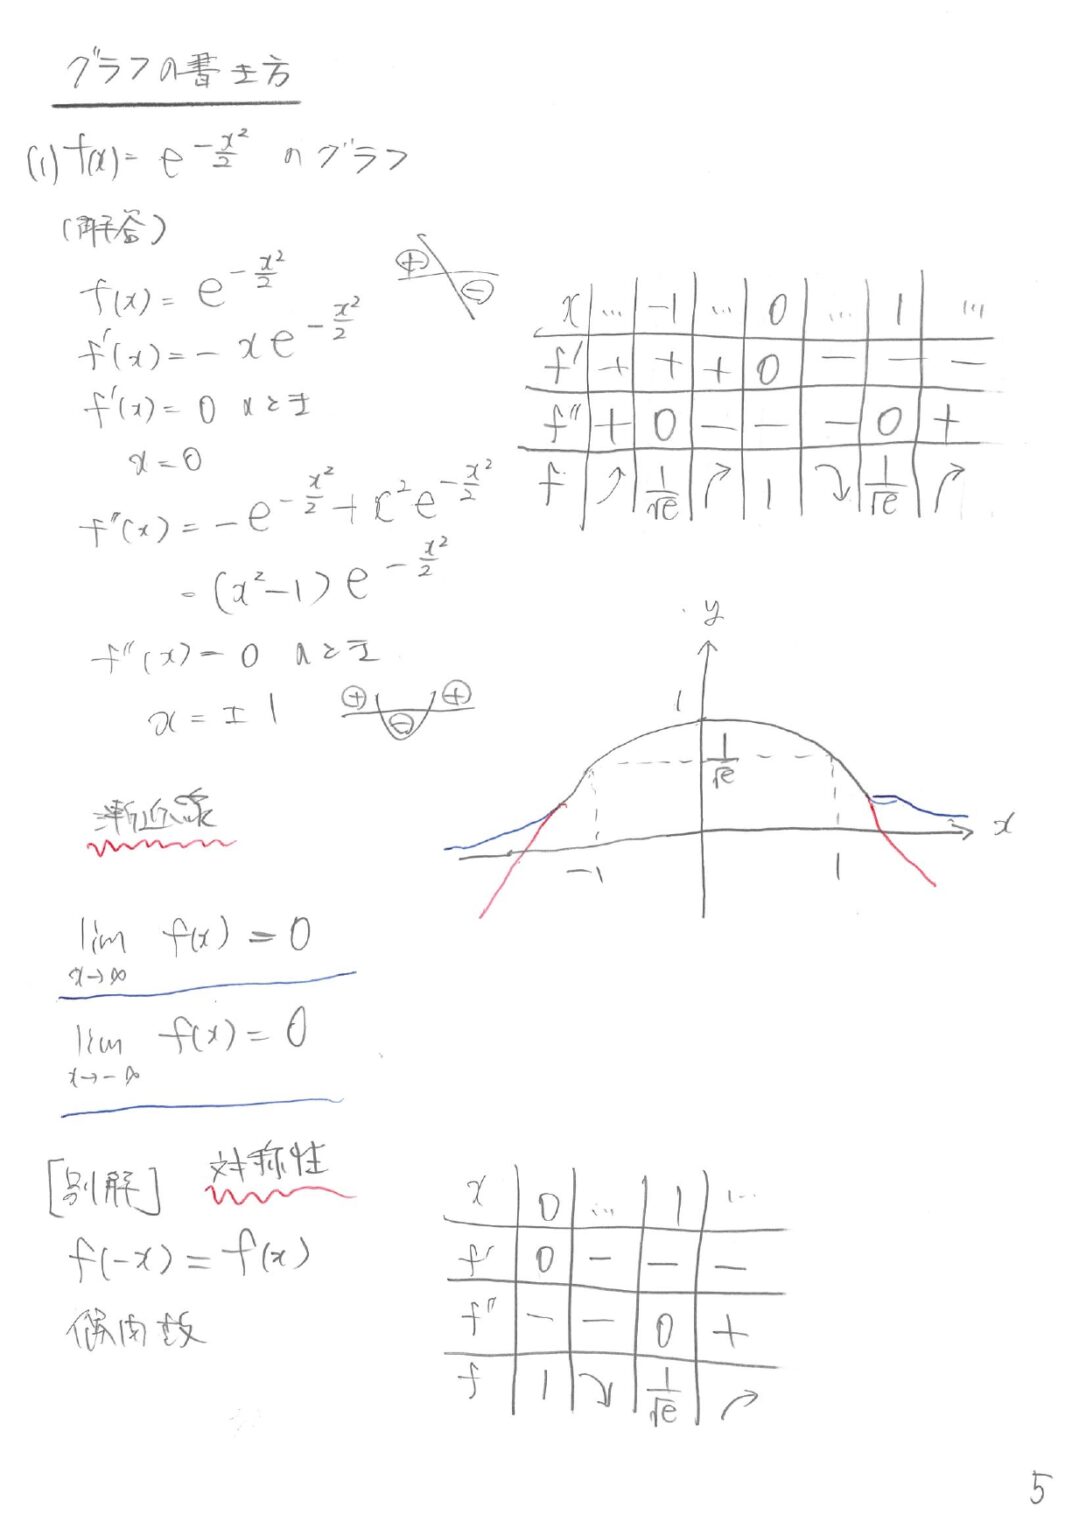 グラフの書き方
(1) f(x) = e^{-x²/2} のグラフ
(解答)
f(x) = e^{-x²/2}
f'(x) = -xe^{-x²/2}
f'(x) = 0 のとき
x = 0
f''(x) = -e^{-x²/2} + x²e^{-x²/2}
= (x²-1)e^{-x²/2}
f''(x) = 0 のとき
x = ±1
⊕ ⊖
⊕ ⊖ ⊕
x … -1 … 0 … 1 …
f' + + + 0 - - -
f'' + 0 - - - 0 +
f ⤴ 1/√e ↱ 1 ⤵ 1/√e ↱
y
1
1/√e
x
-1 1
漸近線
lim_{x→∞} f(x) = 0
lim_{x→-∞} f(x) = 0
[別解] 対称性
f(-x) = f(x)
偶関数
x 0 … 1 …
f' 0 - - -
f'' - - 0 +
f 1 ⤵ 1/√e ↱
5